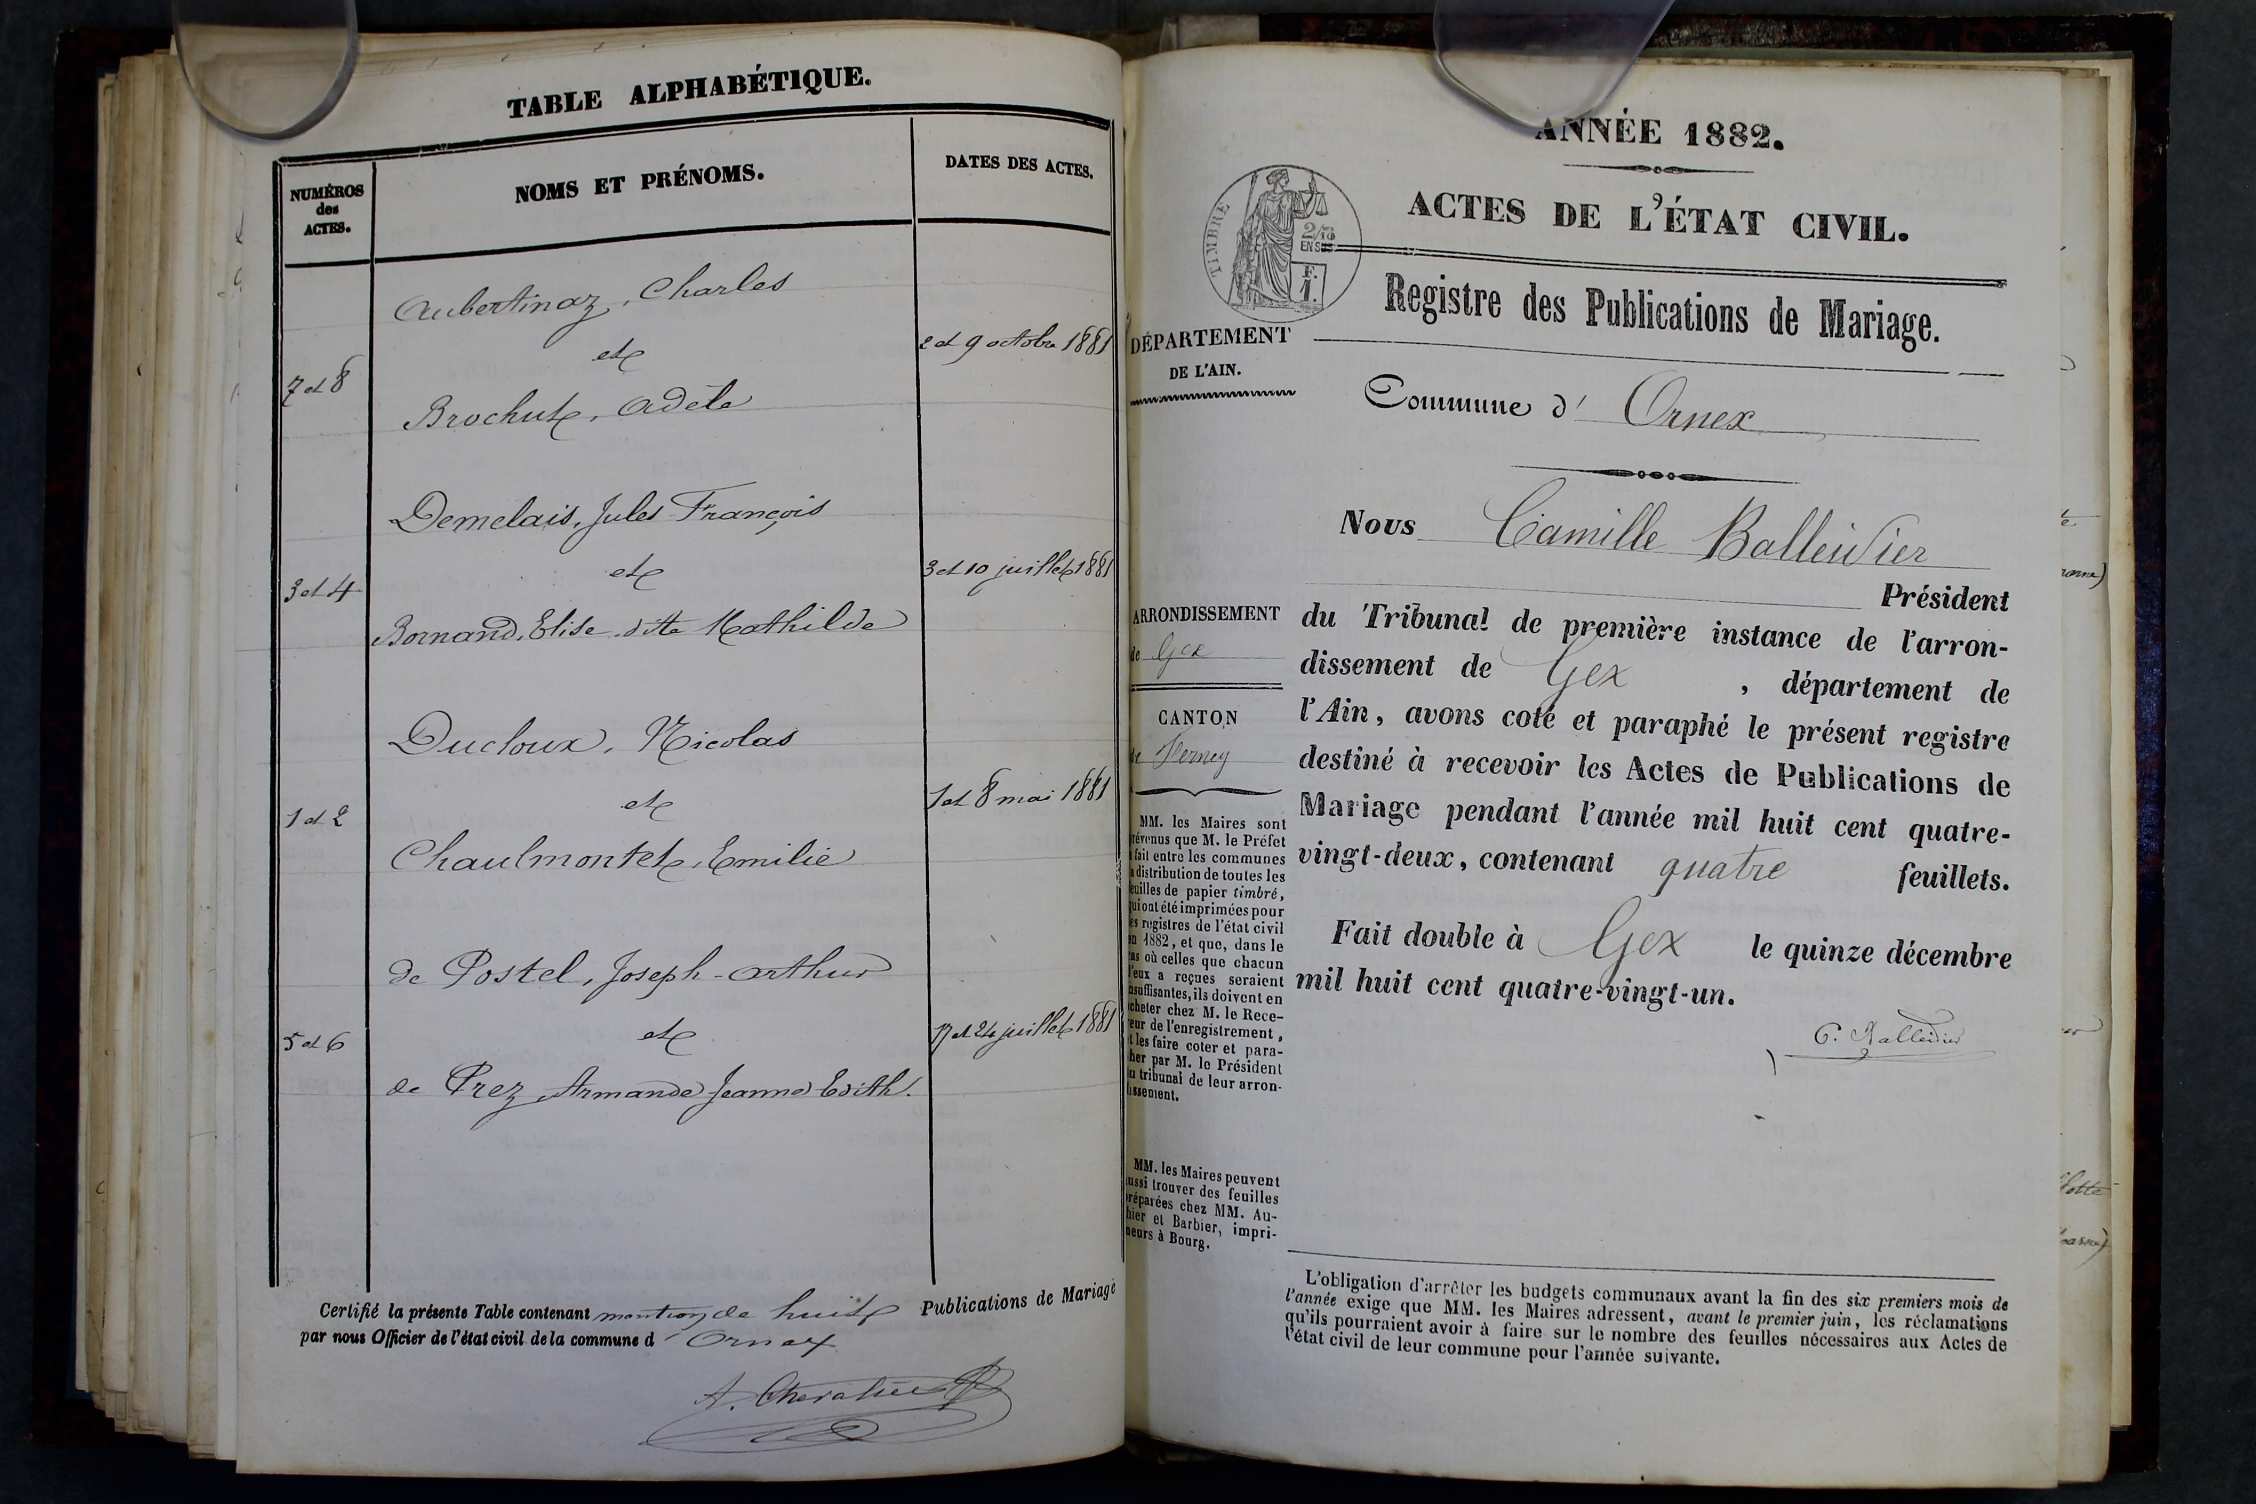 TABLE ALPHABÉTIQUE.
NUMÉROS
des
ACTES.
NOMS ET PRÉNOMS.
DATES DES ACTES.
Aubertinaz, Charles
et
7 et 8
2 et 9 octobre 1881
Brochut, Adèle
Demelais, Jules François
et
3 et 4
3 et 10 juillet 1881
Bornand, Elise dite Mathilde
Ducloux, Nicolas
et
1 et 2
1 et 8 mai 1881
Chaulmontet, Emilie
de Postel, Joseph-Arthur
et
5 et 6
17 et 24 juillet 1881
de Prez, Armande Jeanne Edith.
Certifié la présente Table contenant mention de huit Publications de Mariage
par nous Officier de l'état civil de la commune d'Ornex
A. Chevalier
ANNÉE 1882.
ACTES DE L'ÉTAT CIVIL.
TIMBRE
2/10
EN SUS
F.
1.
Registre des Publications de Mariage.
DÉPARTEMENT
DE L'AIN.
Commune d' Ornex
Nous Camille Balleidier
Président
du Tribunal de première instance de l'arron-
dissement de Gex, département de
l'Ain, avons coté et paraphé le présent registre
destiné à recevoir les Actes de Publications de
Mariage pendant l'année mil huit cent quatre-
vingt-deux, contenant quatre feuillets.
Fait double à Gex le quinze décembre
mil huit cent quatre-vingt-un.
C. Balleidier
ARRONDISSEMENT
de Gex
CANTON
de Ferney
MM. les Maires sont
prévenus que M. le Préfet
a fait entre les communes
la distribution de toutes les
feuilles de papier timbré,
qui ont été imprimées pour
les registres de l'état civil
en 1882, et que, dans le
cas où celles que chacun
d'eux a reçues seraient
insuffisantes, ils doivent en
acheter chez M. le Rece-
veur de l'enregistrement,
et les faire coter et para-
pher par M. le Président
du tribunal de leur arron-
dissement.
MM. les Maires peuvent
aussi trouver des feuilles
préparées chez MM. Au-
thier et Barbier, impri-
meurs à Bourg.
L'obligation d'arrêter les budgets communaux avant la fin des six premiers mois de
l'année exige que MM. les Maires adressent, avant le premier juin, les réclamations
qu'ils pourraient avoir à faire sur le nombre des feuilles nécessaires aux Actes de
l'état civil de leur commune pour l'année suivante.